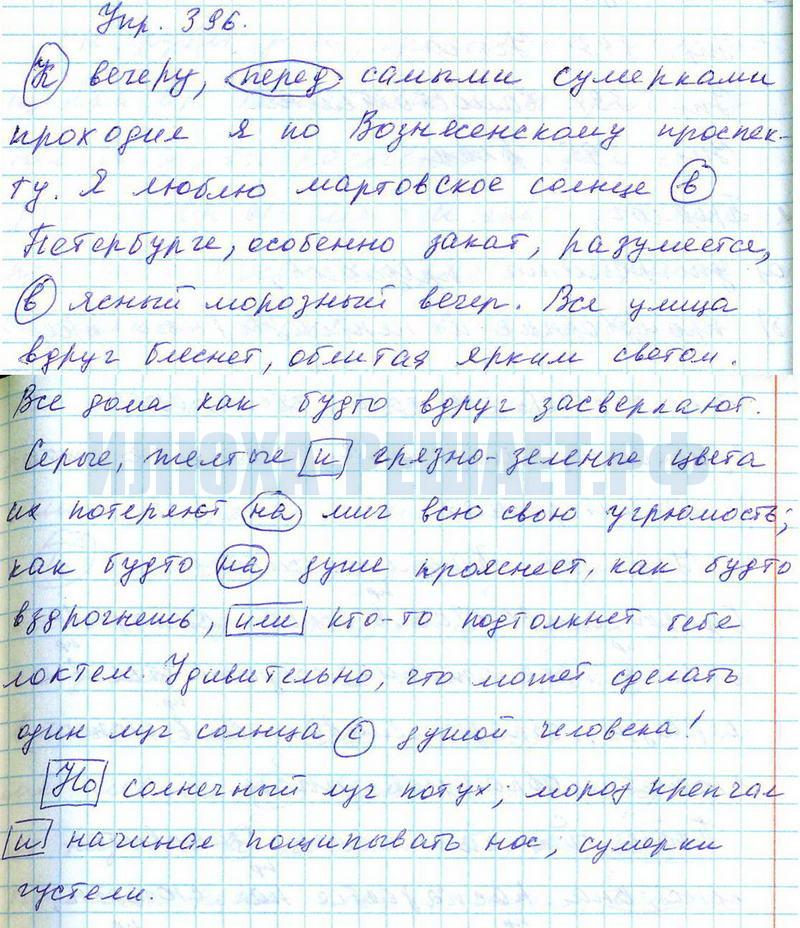 Упр. 396.
К вечеру, перед самыми сумерками
проходил я по Вознесенскому проспек-
ту. Я люблю мартовское солнце в
Петербурге, особенно закат, разумеется,
в ясный морозный вечер. Вся улица
вдруг блеснет, облитая ярким светом.
Все дома как будто вдруг засверкают.
Серые, желтые и грязно-зеленые цвета
их потеряют на миг всю свою угрюмость;
как будто на душе прояснеет, как будто
вздрогнешь, или кто-то подтолкнет тебя
локтем. Удивительно, что может сделать
один луч солнца с душой человека!
Но солнечный луч потух; мороз крепчал
и начинал пощипывать нос; сумерки
густели.
ИЛЮХА-РЕШАЕТ.РФ